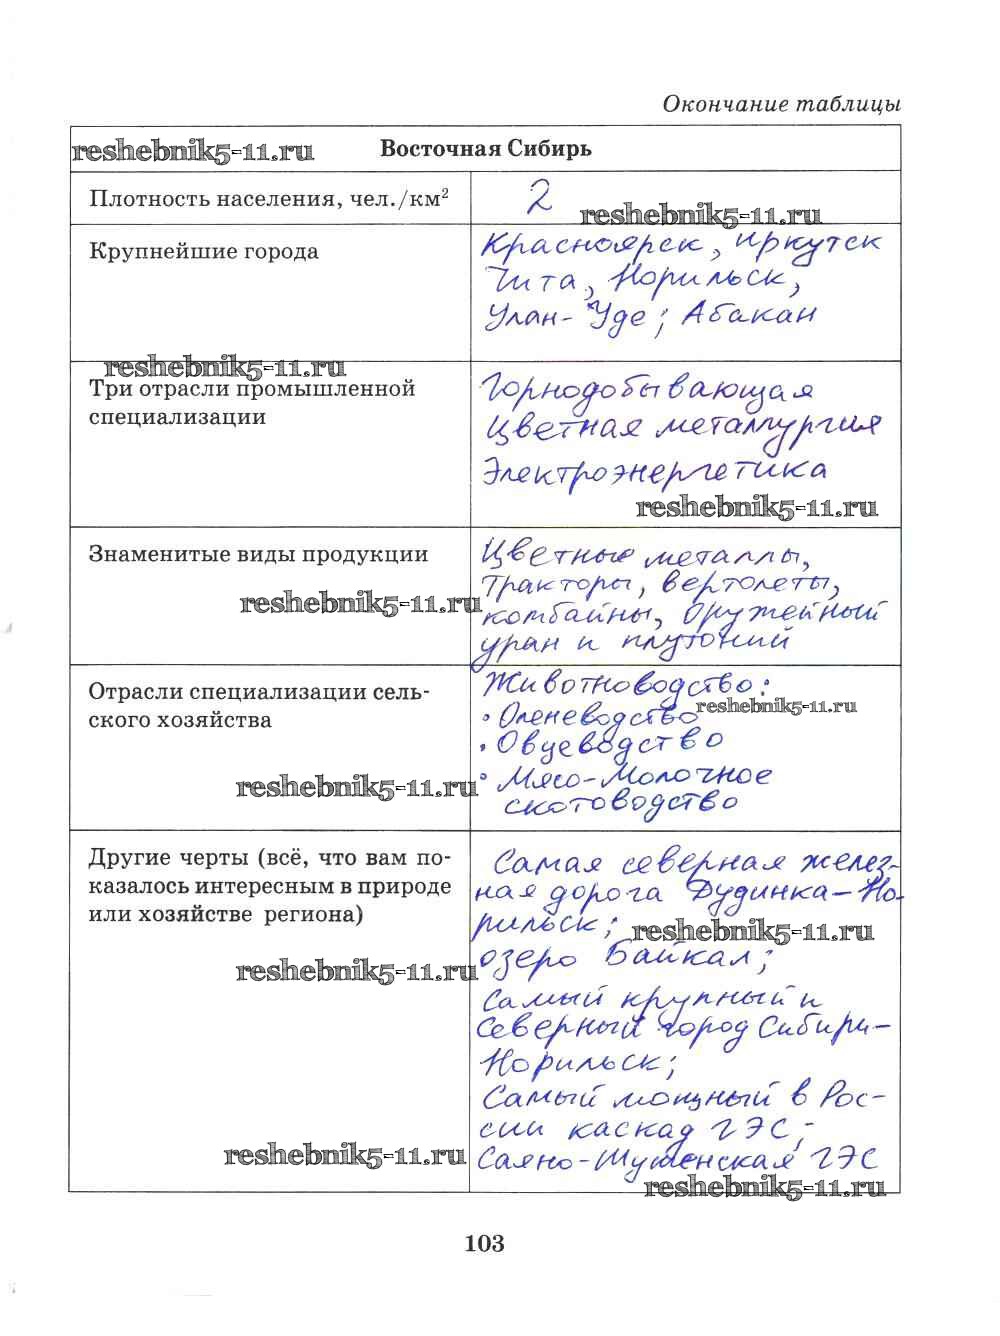 Окончание таблицы
reshebnik5-11.ru Восточная Сибирь
Плотность населения, чел./км² 2
reshebnik5-11.ru
Крупнейшие города
Красноярск, Иркутск
Чита, Норильск,
Улан-Уде; Абакан
reshebnik5-11.ru
Три отрасли промышленной
специализации
Горнодобывающая
Цветная металлургия
Электроэнергетика
reshebnik5-11.ru
Знаменитые виды продукции
reshebnik5-11.ru
Цветные металлы,
Тракторы, вертолеты,
комбайны, Оружейный
уран и плутоний
Отрасли специализации сель-
ского хозяйства
reshebnik5-11.ru
Животноводство:
reshebnik5-11.ru
• Оленеводство
• Овцеводство
• Мясо-Молочное
скотоводство
Другие черты (всё, что вам по-
казалось интересным в природе
или хозяйстве региона)
reshebnik5-11.ru
reshebnik5-11.ru
Самая северная желез-
ная дорога Дудинка-Но-
рильск;
reshebnik5-11.ru
озеро Байкал;
Самый крупный и
Северный город Сибири-
Норильск;
Самый мощный в Рос-
сии каскад ГЭС;-
Саяно-Шушенская ГЭС
reshebnik5-11.ru
103